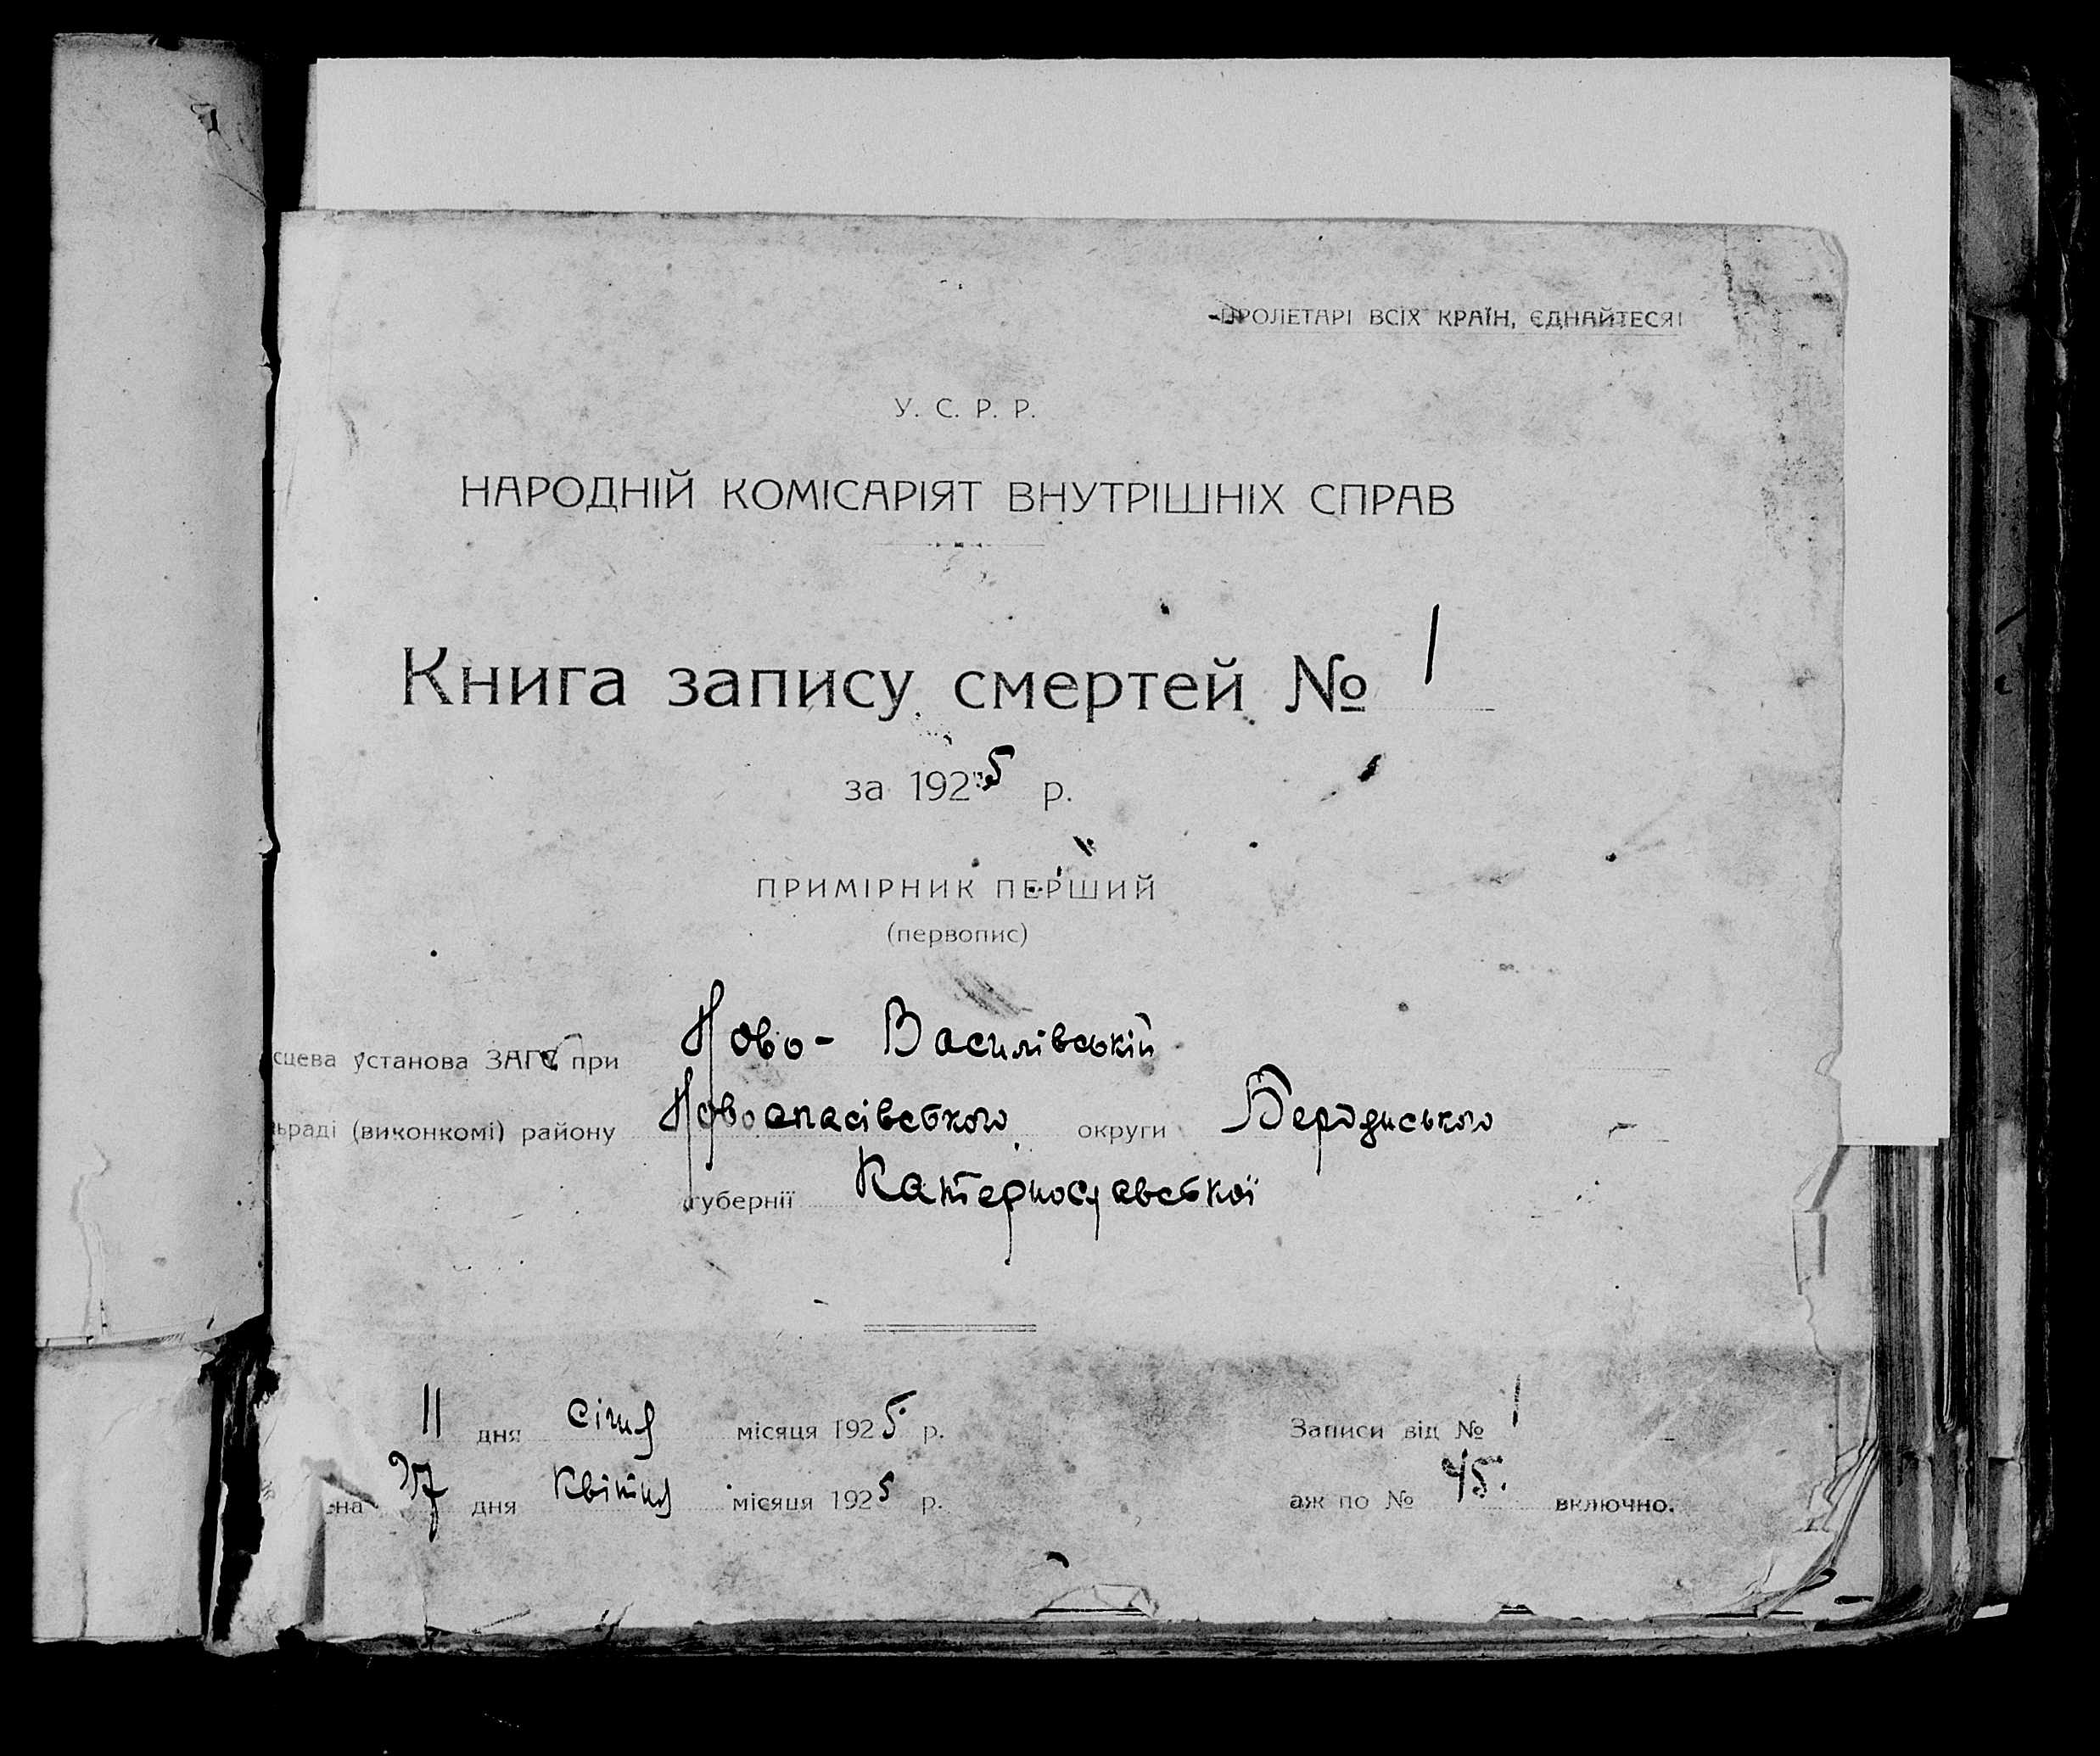 ПРОЛЕТАРІ ВСІХ КРАЇН, ЄДНАЙТЕСЯ!
У. С. Р. Р.
НАРОДНІЙ КОМІСАРІЯТ ВНУТРІШНІХ СПРАВ
Книга запису смертей № 1
за 1925 р.
ПРИМІРНИК ПЕРШИЙ
(первопис)
сцева установа ЗАГС при Ново-Василівській
ьраді (виконкомі) району Новоспасівського округи Бердянського
губернії Катеринославської
11 дня січня місяця 1925 р. Записи від № 1
на 27 дня квітня місяця 1925 р. аж по № 45. включно.